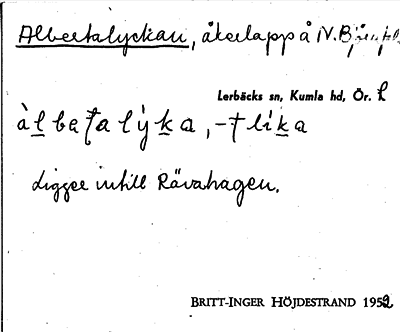 Albertalyckan, åkerlapp å N.
Lerbäcks sn, Kumla hd, Ör. l
àl̲bet̲a lỳk̲a, -t lik̲a
ligger intill Rävahagen.
BRITT-INGER HÖJDESTRAND 1952